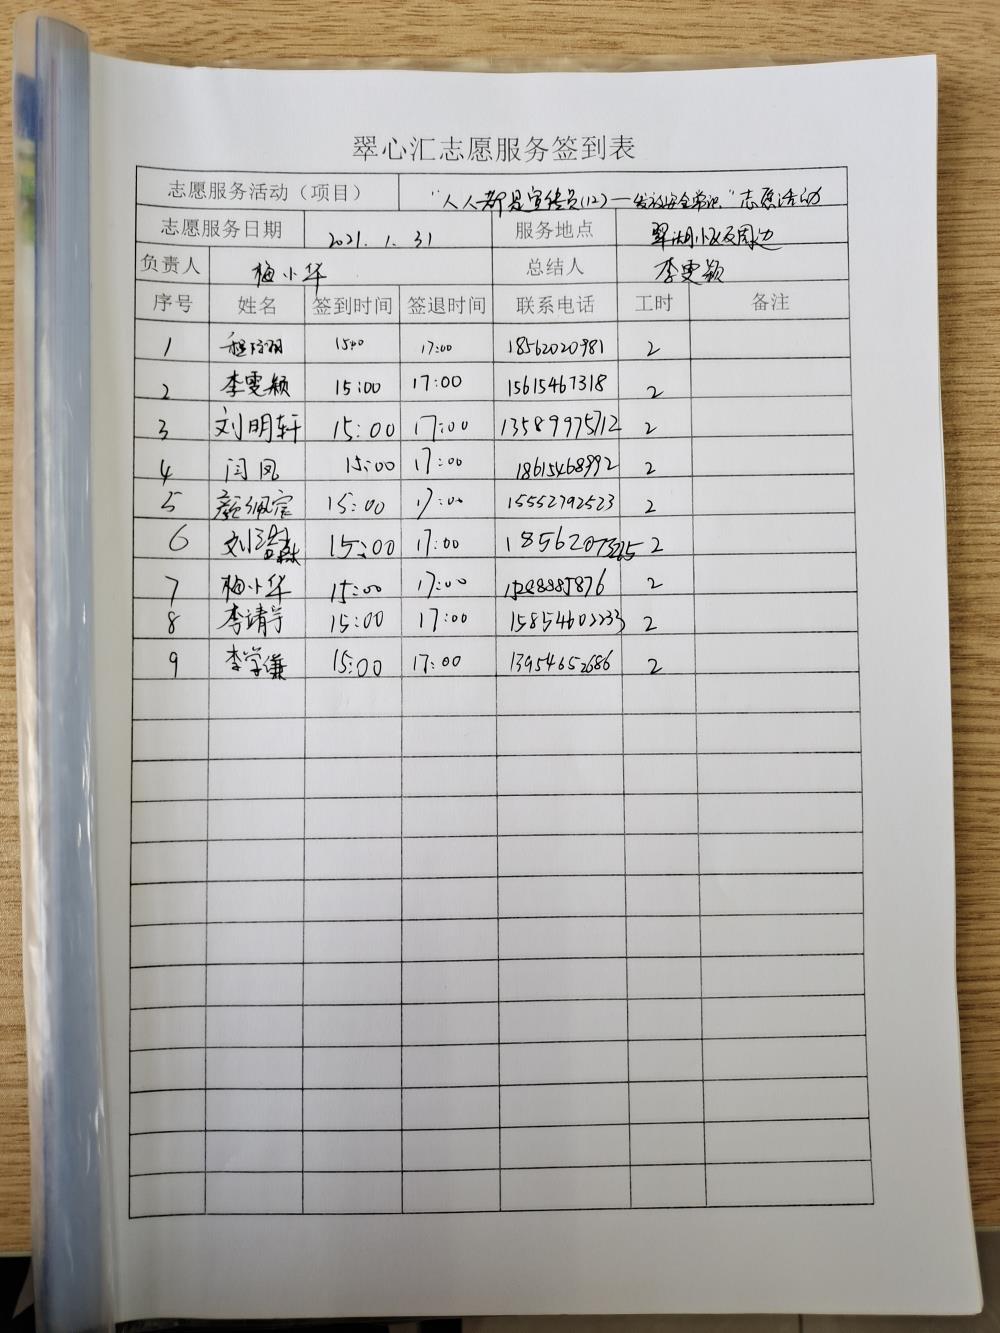 翠心汇志愿服务签到表
志愿服务活动（项目） "人人都是宣传员(12)—发放安全常识"志愿活动
志愿服务日期 2021.1.31 服务地点 翠湖小区及周边
负责人 梅小华 总结人 李雯颖
序号 姓名 签到时间 签退时间 联系电话 工时 备注
1 17:00 18562020981 2
2 李雯颖 15:00 17:00 15615467318 2
3 刘明轩 15:00 17:00 13589975712 2
4 闫凤 15:00 17:00 2
5 颜佩宸 15:00 17:00 15552792523 2
6 15:00 17:00 2
7 梅小华 15:00 17:00 2
8 李靖宇 15:00 17:00 15854602233 2
9 李学谦 15:00 17:00 13954652686 2